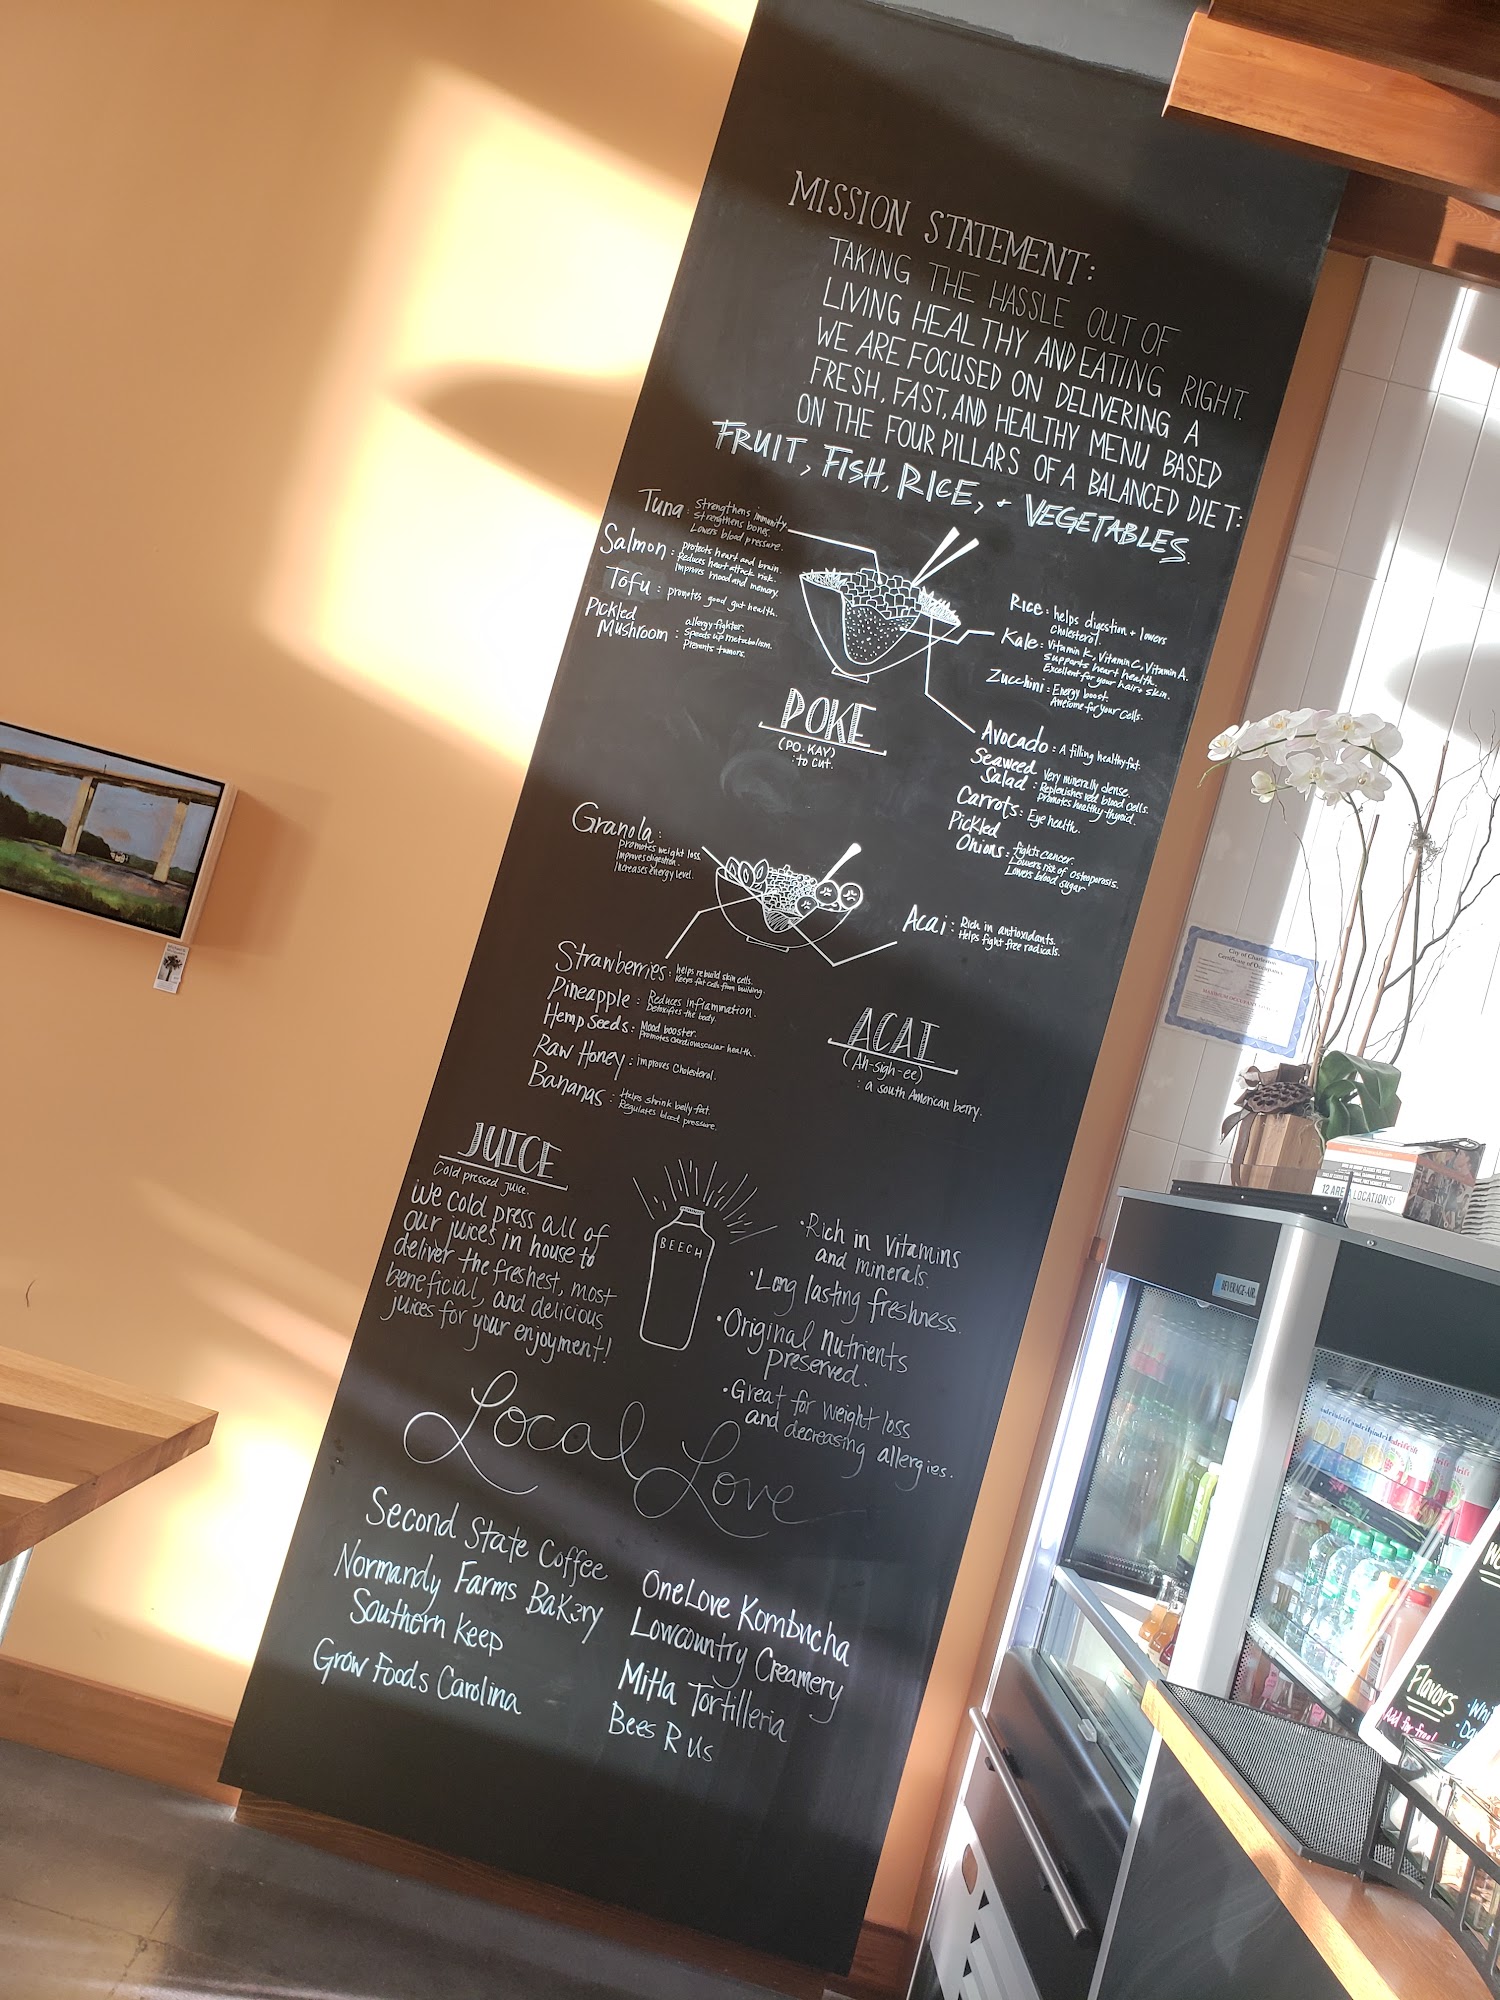 MISSION STATEMENT:
TAKING THE HASSLE OUT OF
LIVING HEALTHY AND EATING RIGHT.
WE ARE FOCUSED ON DELIVERING A
FRESH, FAST, AND HEALTHY MENU BASED
ON THE FOUR PILLARS OF A BALANCED DIET:
FRUIT, FISH, RICE, + VEGETABLES.
Tuna: Strengthens immunity.
Strengthens bones.
Lowers blood pressure.
Salmon: protects heart and brain.
Reduces heart attack risk.
Improves mood and memory.
Tofu: promotes good gut health.
Pickled
Mushroom: allergy fighter.
Speeds up metabolism.
Prevents tumors.
Rice: helps digestion + lowers
cholesterol.
Kale: Vitamin K, Vitamin C, Vitamin A.
supports heart health.
Excellent for your hair + skin.
Zucchini: Energy boost.
Awesome for your cells.
Avocado: A filling healthy fat.
Seaweed
Salad: Very minerally dense.
Replenishes red blood cells.
Promotes healthy thyroid.
Carrots: Eye health.
Pickled
Onions: fights cancer.
Lowers risk of osteoporosis.
Lowers blood sugar
POKE
(PO-KAY)
: to cut.
Granola:
Promotes weight loss
Improves digestion.
Increases energy level.
Acai: Rich in antioxidants.
Helps fight free radicals.
Strawberries: helps rebuild skin cells.
Keeps fat cells from building.
Pineapple: Reduces inflammation.
Detoxifies the body.
Hemp Seeds: Mood booster.
Promotes cardiovascular health.
Raw Honey: improves Cholesterol.
Bananas: Helps shrink belly fat.
Regulates blood pressure.
ACAI
(Ah-sigh-ee)
: a south American berry.
JUICE
Cold pressed juice.
We cold press all of
our juices in house to
deliver the freshest, most
beneficial, and delicious
juices for your enjoyment!
BEECH
•Rich in vitamins
and minerals.
•Long lasting freshness.
•Original nutrients
preserved.
•Great for weight loss
and decreasing allergies.
Local Love
Second State Coffee
Normandy Farms Bakery
Southern Keep
Grow Foods Carolina
OneLove Kombucha
Lowcountry Creamery
Mitla Tortilleria
Bees R Us
City of Charleston
Certificate of Occupancy
12 AREA LOCATIONS!
BEVERAGE-AIR
Flavors